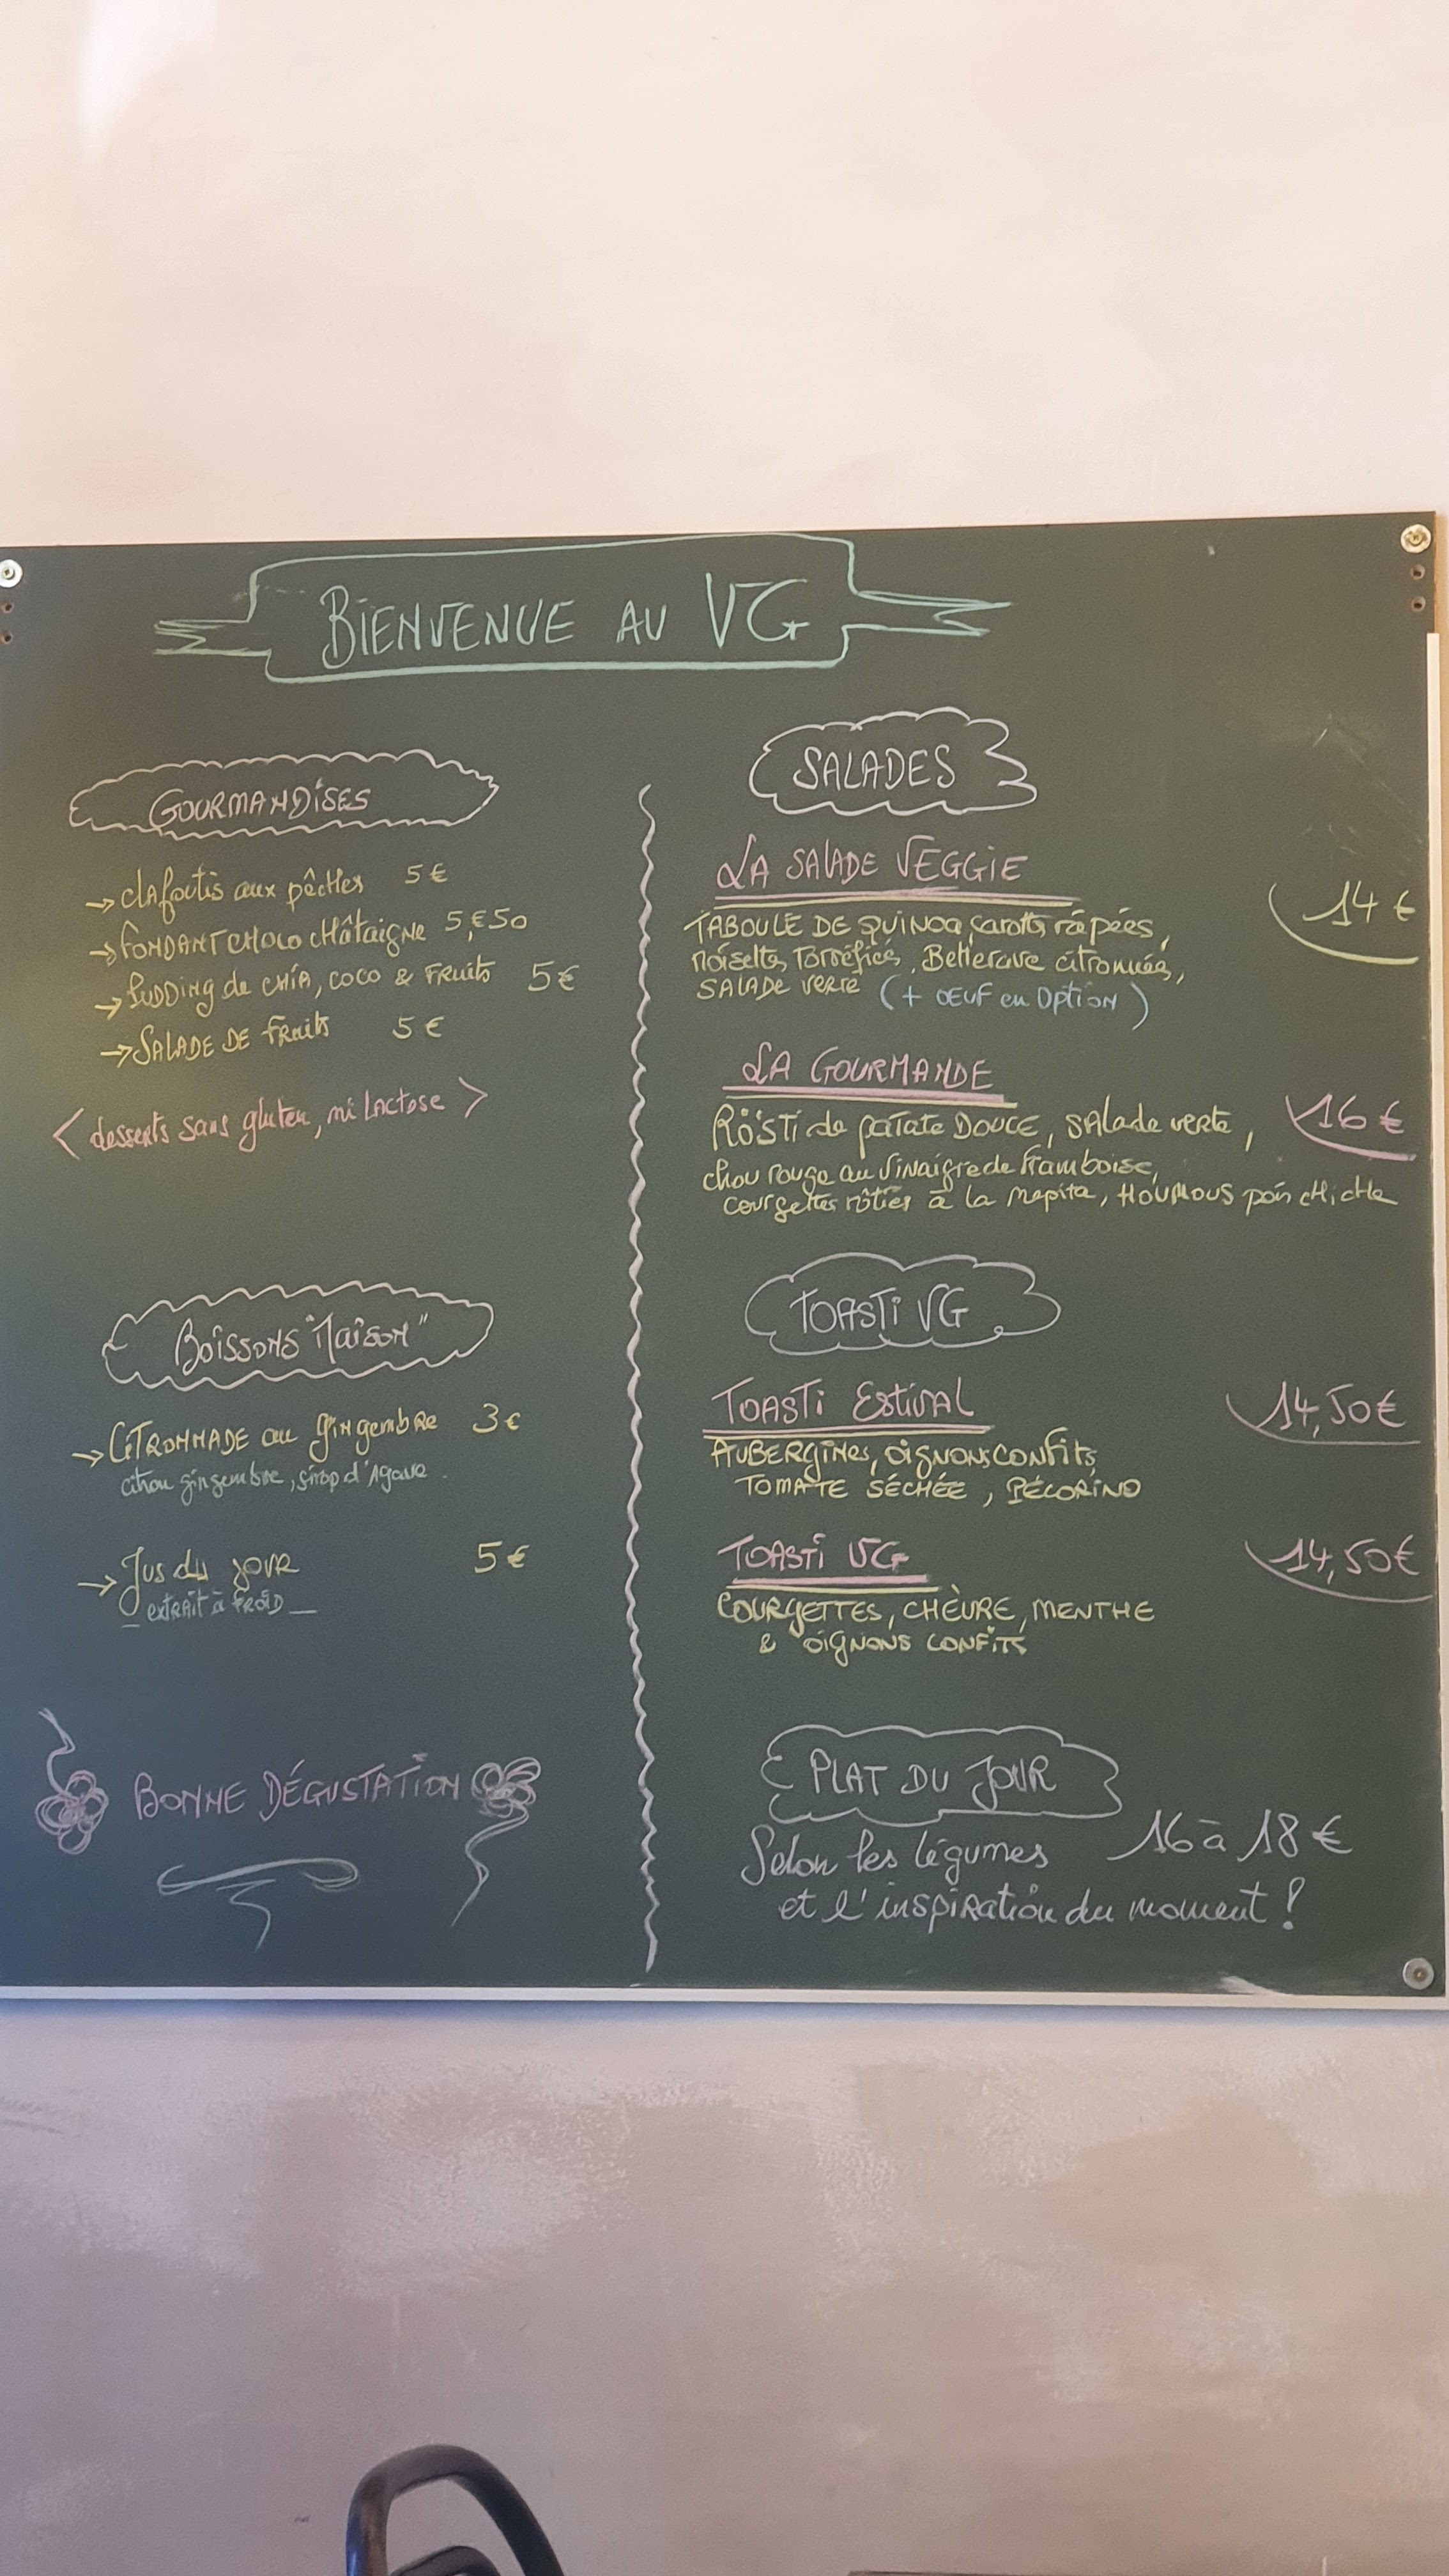 BIENVENUE AU VG
GOURMANDISES
→ clafoutis aux pêches 5 €
→ FONDANT CHOCO CHÂTAIGNE 5,€50
→ PUDDING de CHIA, COCO & FRUITS 5 €
→ SALADE DE fruits 5 €
< desserts sans gluten, ni Lactose >
BOISSONS "MAISON"
→ CITRONNADE au gingembre 3 €
citron gingembre, sirop d'Agave.
→ Jus du JOUR 5 €
_ extrait à froid _
BONNE DÉGUSTATION
SALADES
LA SALADE VEGGIE 14 €
TABOULÉ DE QUINOA, carotts râpées,
noisettes Torréfiées, Betterave citronnée,
SALADE verte (+ OEUF en OPTION)
LA GOURMANDE 16 €
RÖSTI de PATATE DOUCE, SALADE verte,
chou rouge au vinaigre de framboise,
courgettes rôties à la , HOUMOUS pois chiche
TOASTI VG
TOASTI Estival 14,50 €
AUBERGINES, OIGNONS CONFITS
TOMATE SÉCHÉE, PÉCORINO
TOASTI VG 14,50 €
COURGETTES, CHÈVRE, MENTHE
& OIGNONS CONFITS
PLAT DU JOUR
Selon les légumes 16 à 18 €
et l'inspiration du moment !